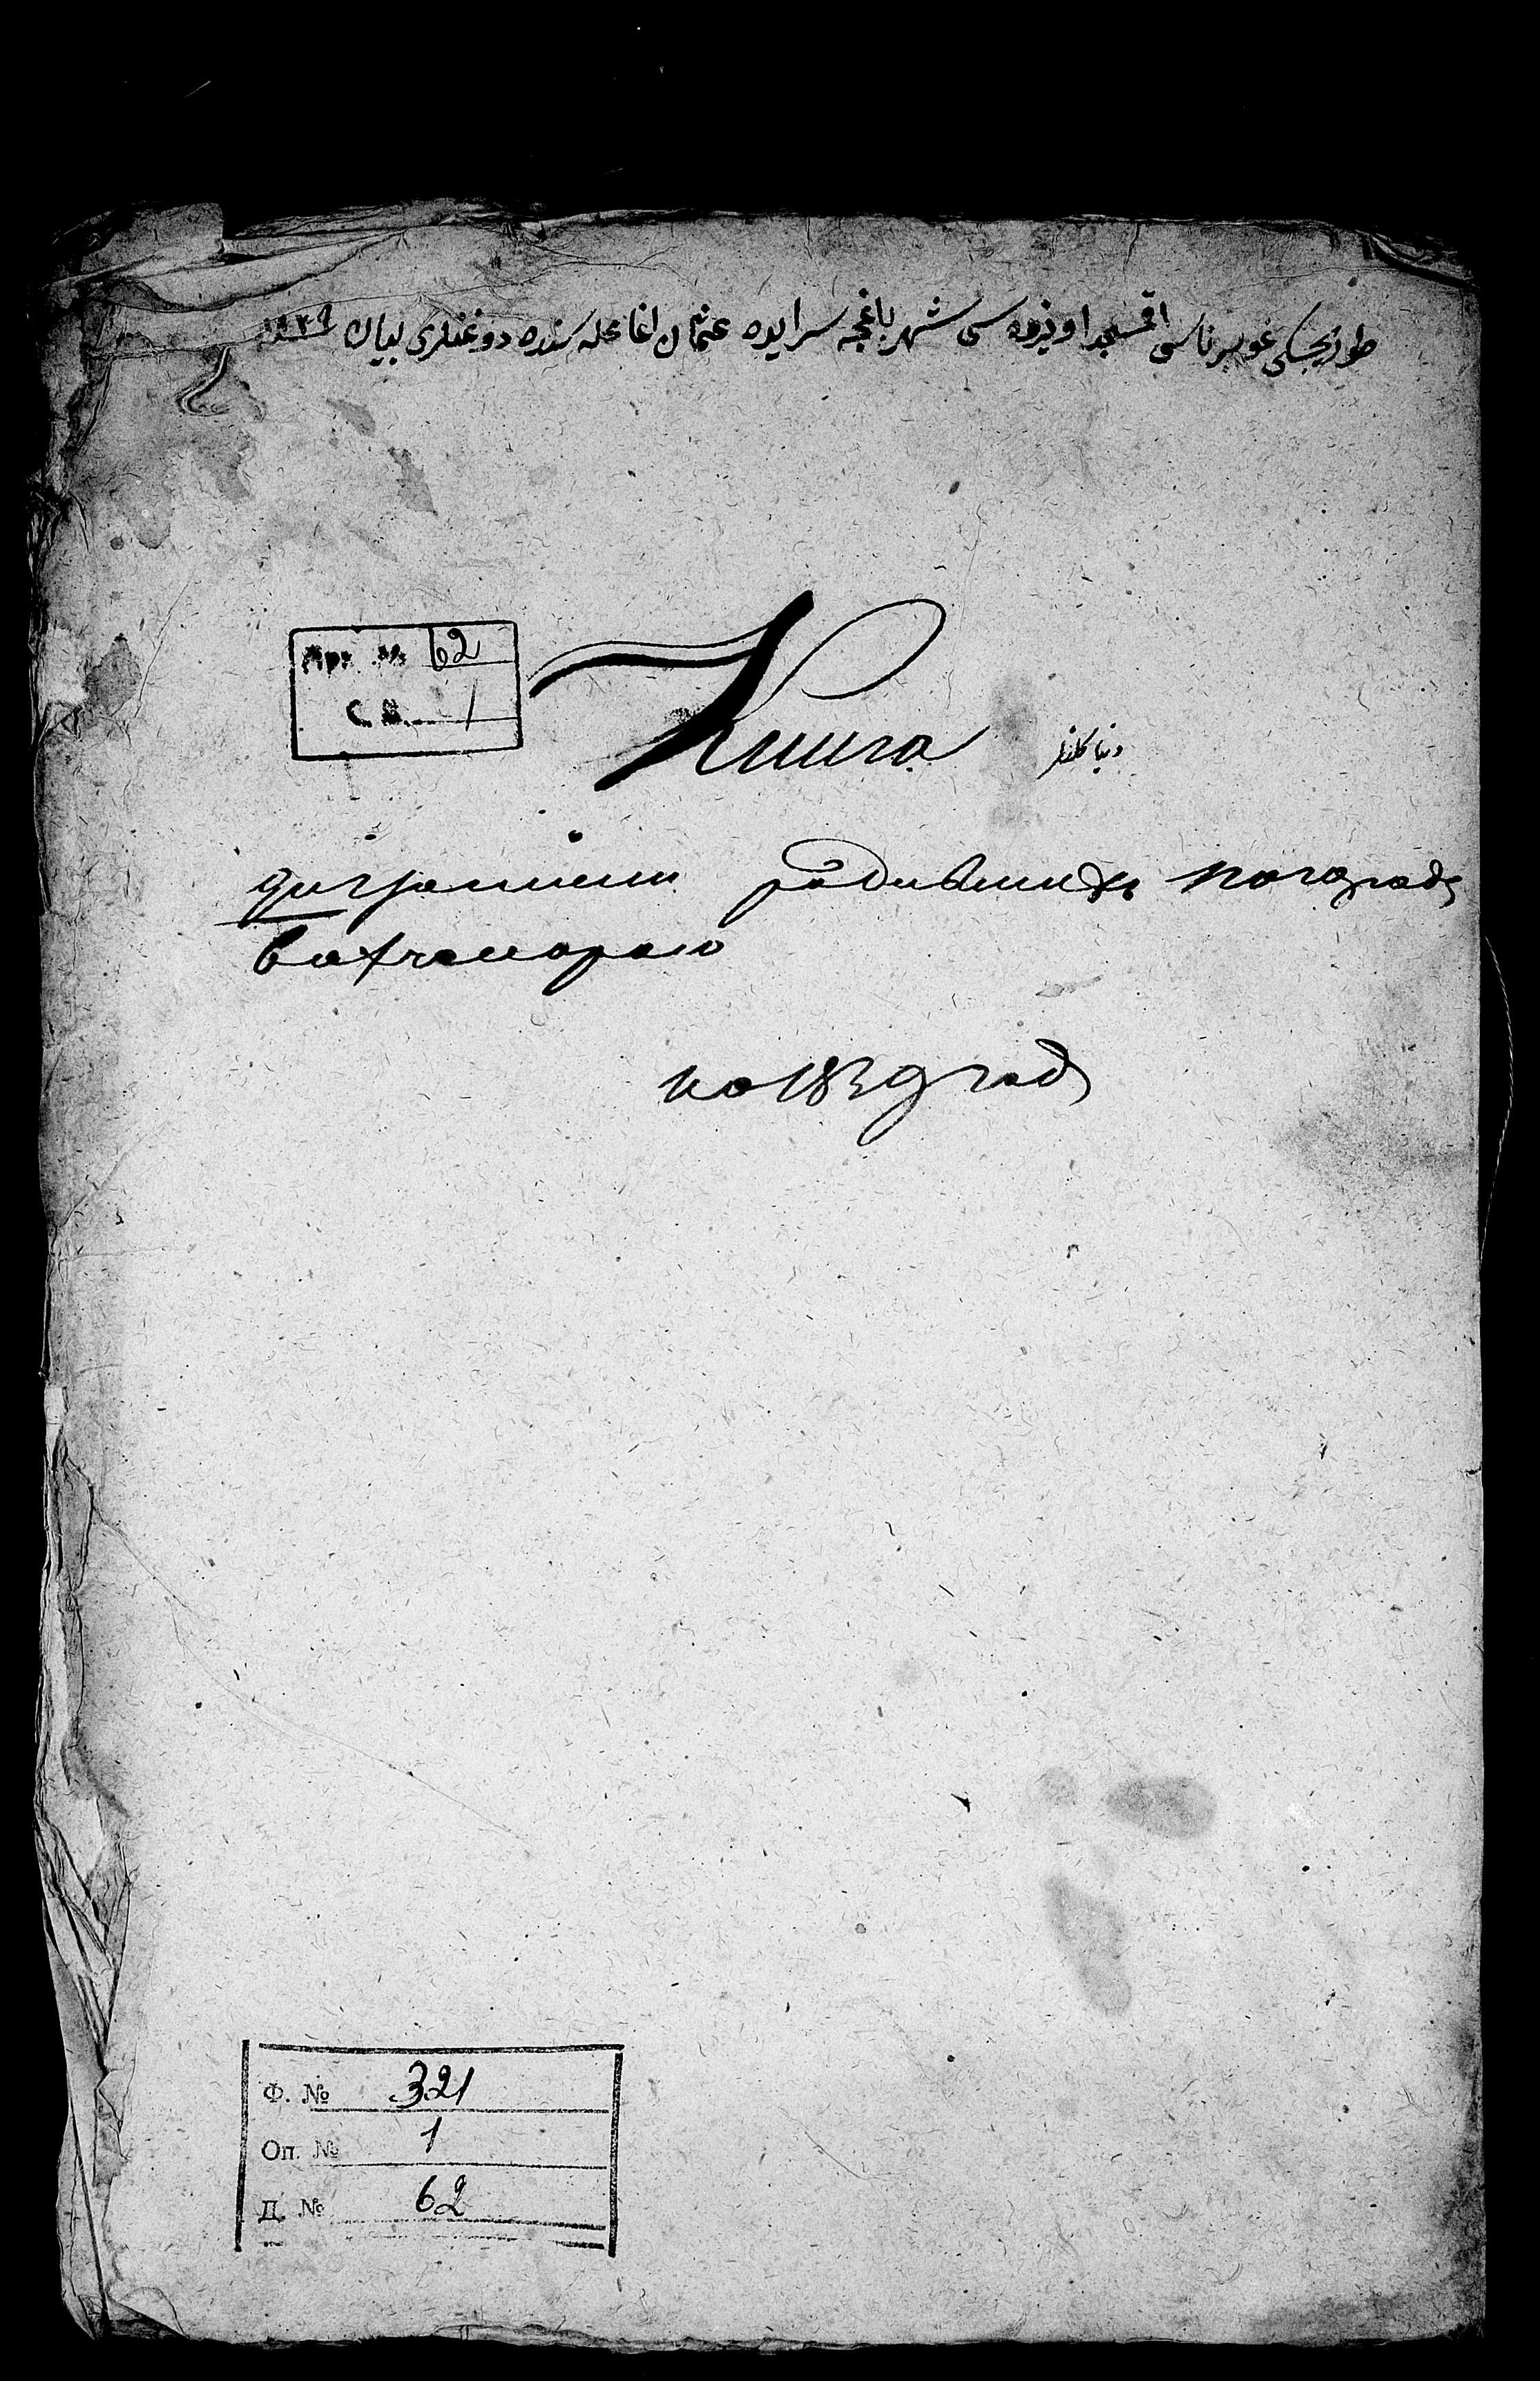 طوریجسکی غوبیرناسی اقمسجد اویزده سی شهر باغچه سرایده عثمان اغا محله سنده دوغغلری بیان ١٨٣٩
Арх. № 62
С. В. 1
Книга
دنیا کلانلر
родившихъ пограду
Бахчесараю
на 1839 год
Ф. № 321
Оп. № 1
Д. № 62